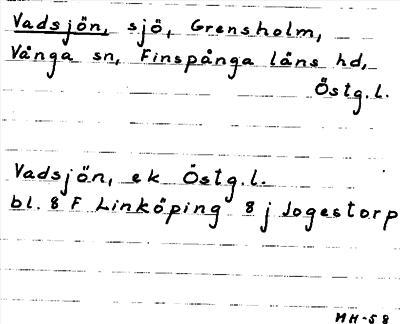 Vadsjön, sjö, Grensholm,
Vånga sn, Finspånga läns hd,
Östg.l.
Vadsjön, ek Östg.l.
bl. 8 F Linköping 8 j Jogestorp
MH-58